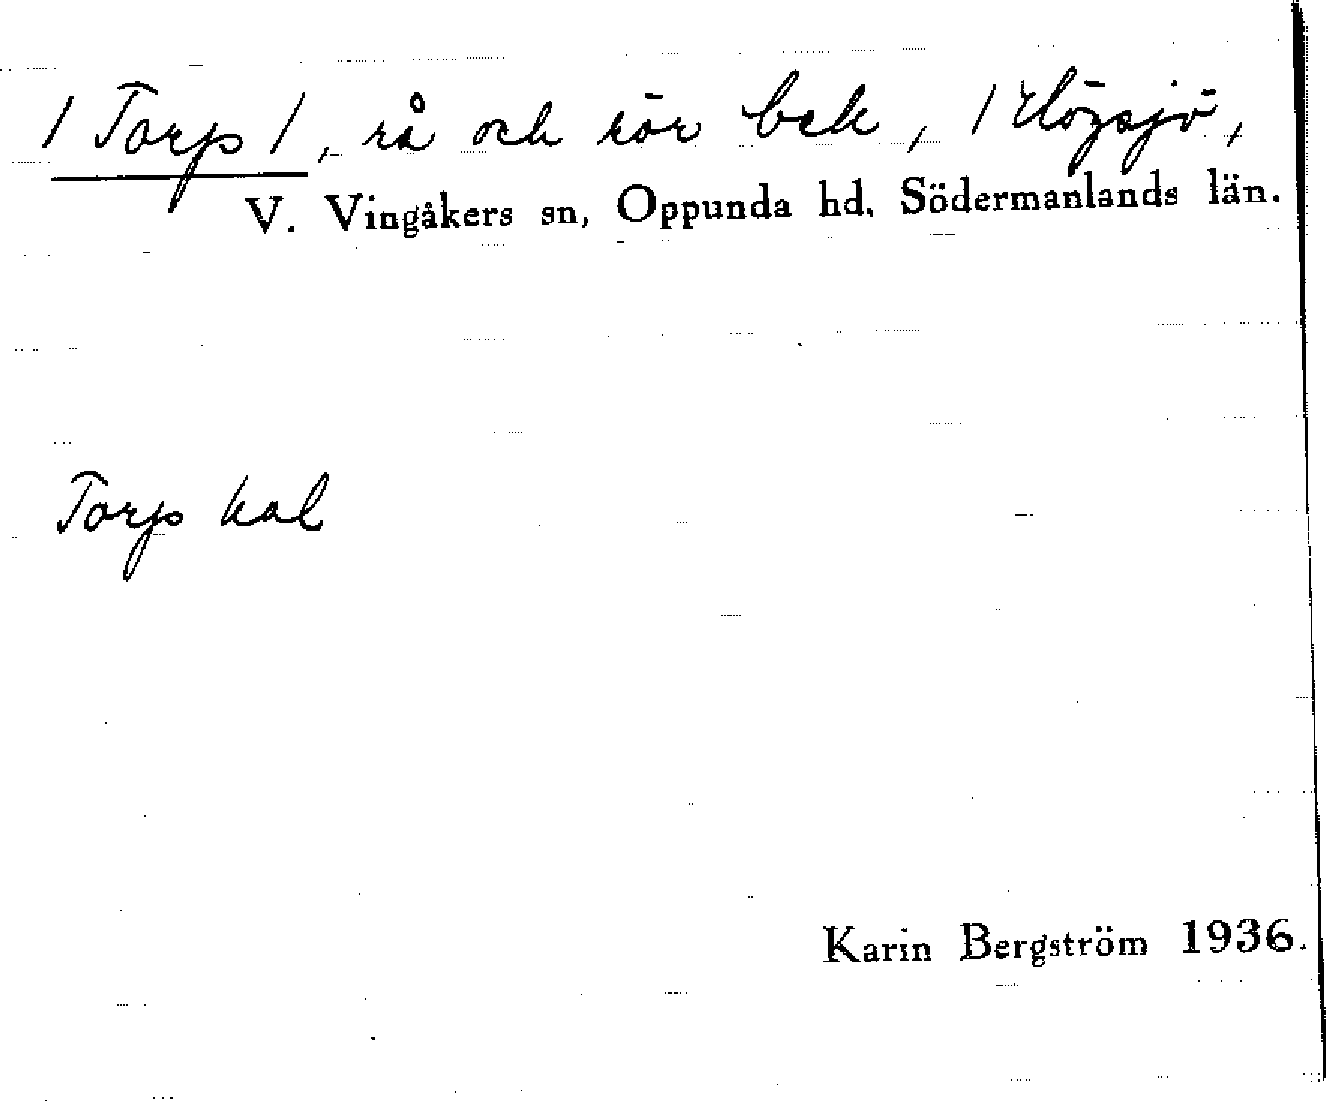 / Torp /, rå och rör bek, / Högsjö,
V. Vingåkers sn, Oppunda hd, Södermanlands län.
Torps hal
Karin Bergström 1936.